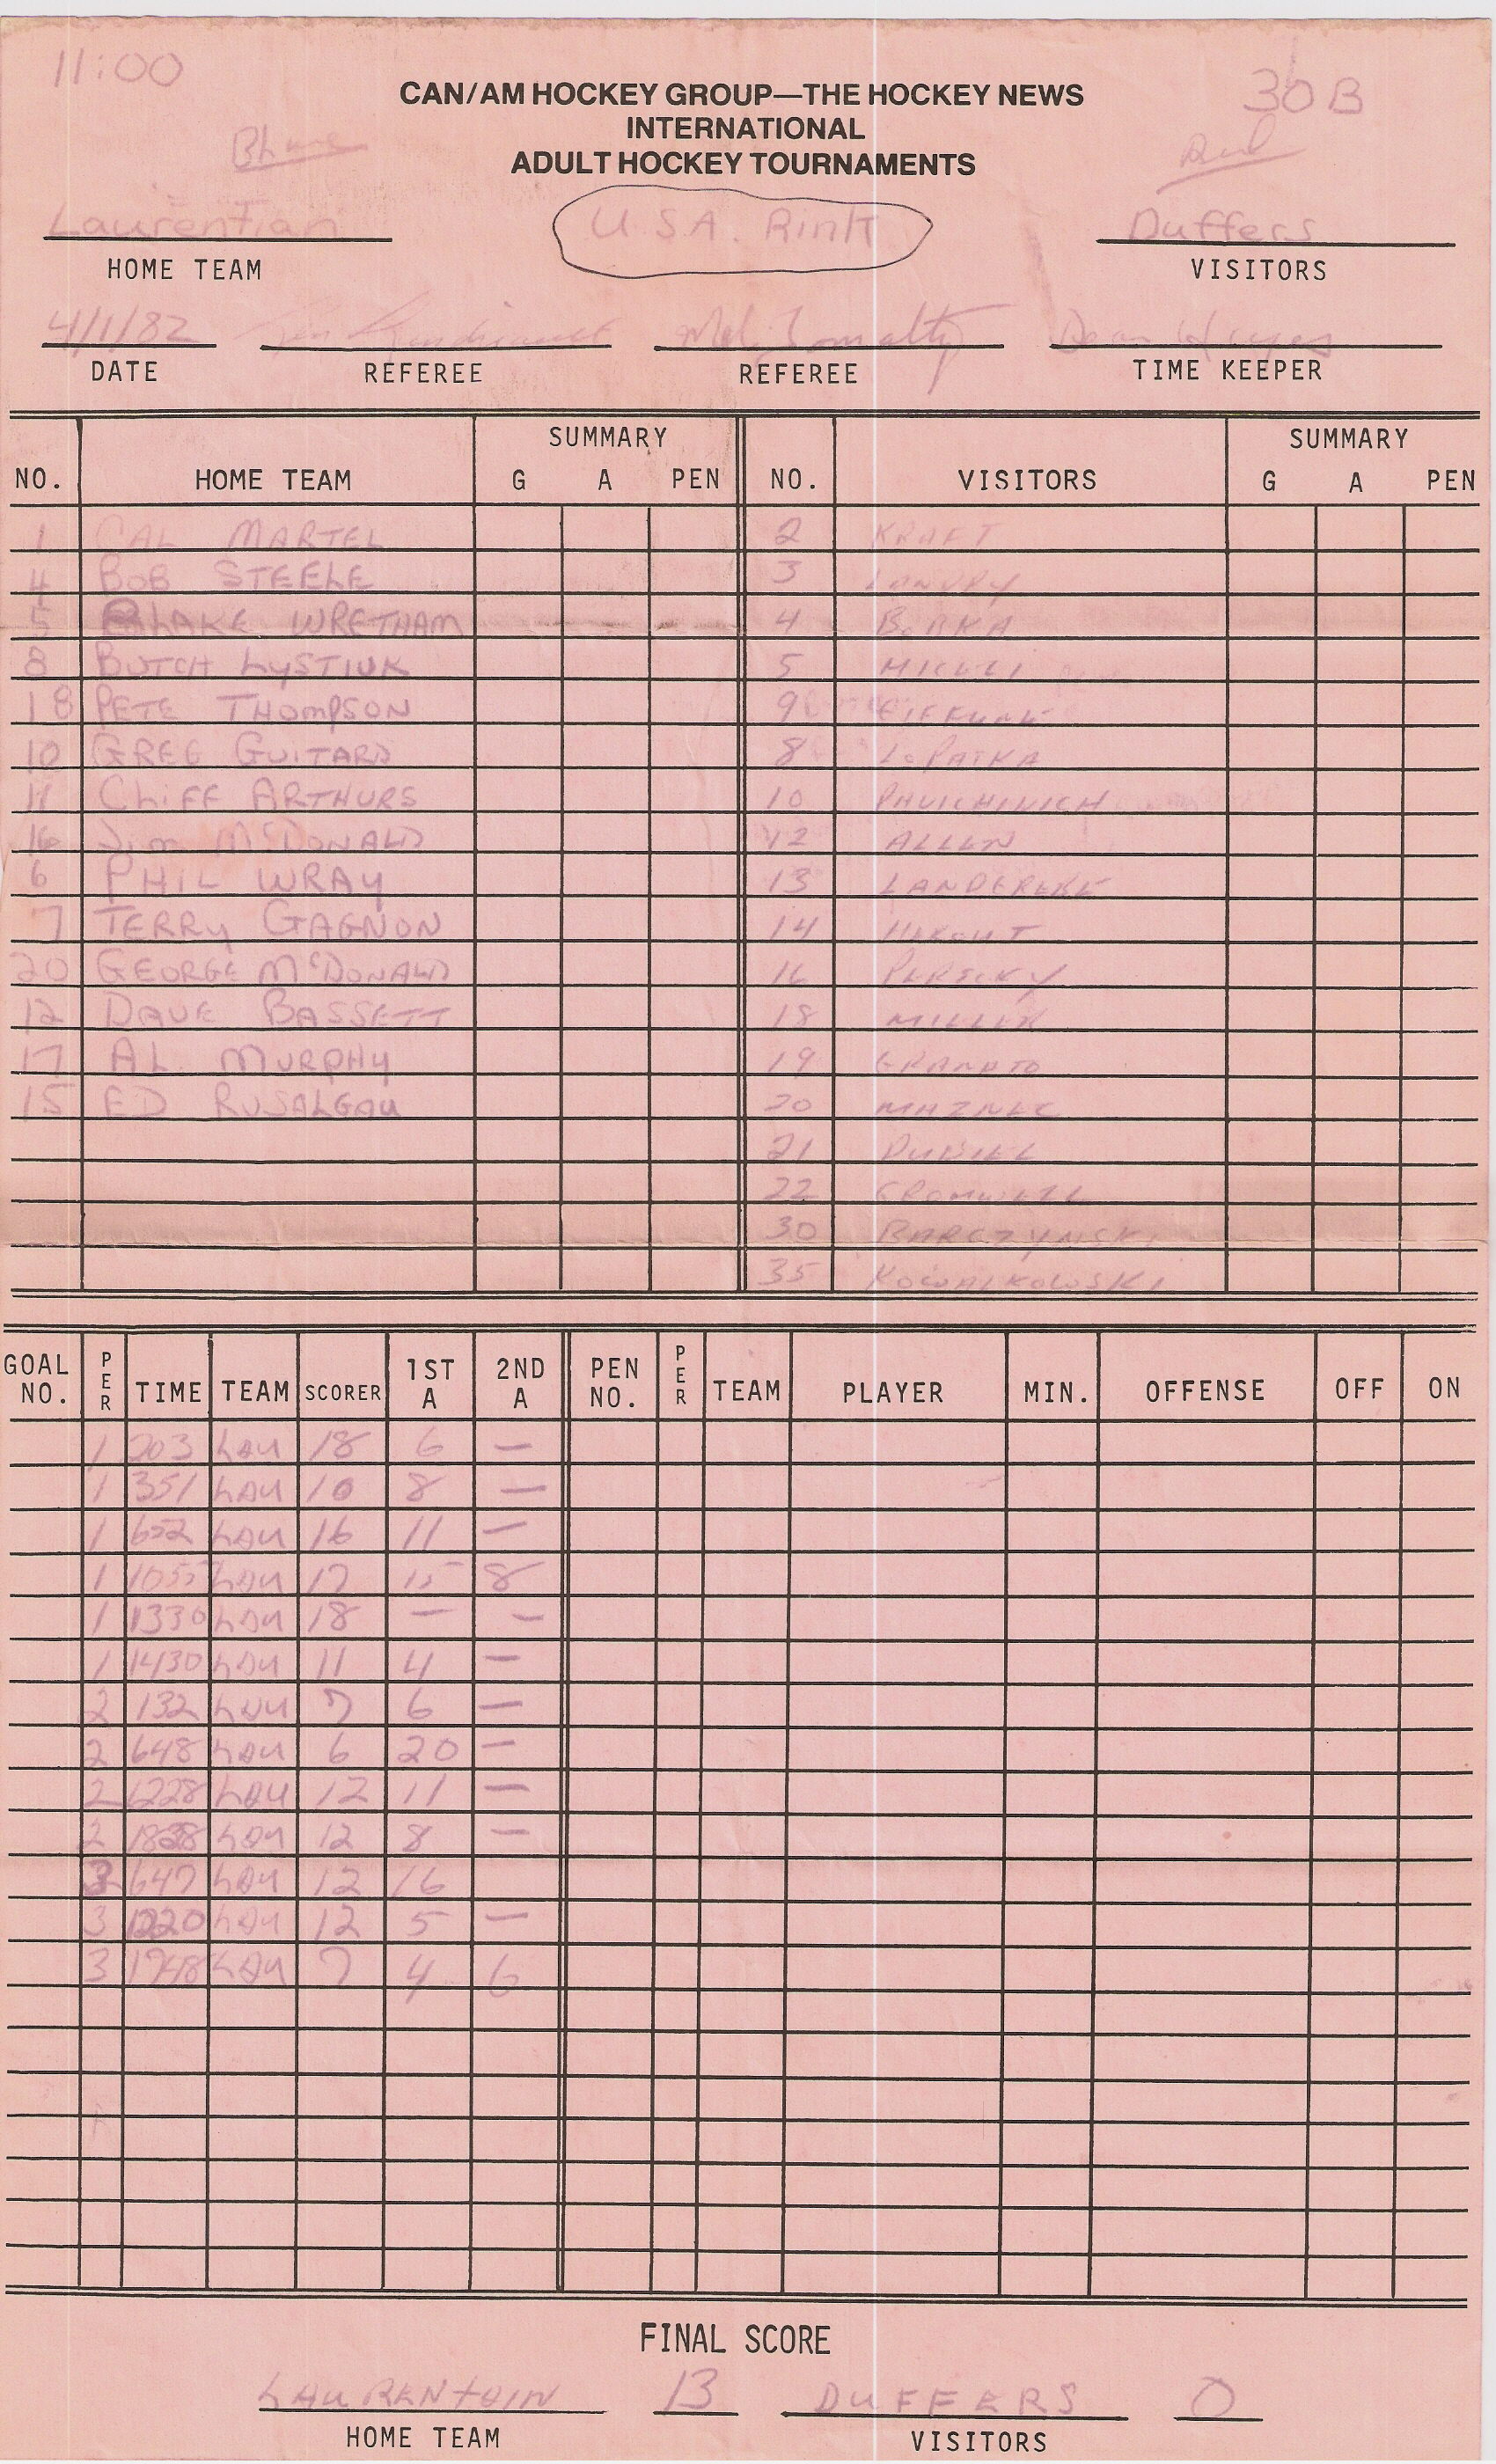 11:00
30B
CAN/AM HOCKEY GROUP—THE HOCKEY NEWS
INTERNATIONAL
ADULT HOCKEY TOURNAMENTS
Red
Laurentian U.S.A. Rink Duffers
HOME TEAM VISITORS
4/1/82
DATE REFEREE REFEREE TIME KEEPER
SUMMARY SUMMARY
NO. HOME TEAM G A PEN NO. VISITORS G A PEN
1 CAL MARTEL 2 KRAFT
4 BOB STEELE 3 LANDRY
5 BLAKE WRETHAM 4 BORKA
8 BUTCH LYSTIUK 5 MICELI
18 PETE THOMPSON 9
10 GREG GUITARD 8 LOPATKA
11 CLIFF ARTHURS 10
16 Jim McDONALD 12 ALLEN
6 PHIL WRAY 13
7 TERRY GAGNON 14
20 GEORGE McDONALD 16
12 DAVE BASSETT 18 MILLER
17 AL MURPHY 19 GRANATO
15 ED RUSALGAU 20
21
22 CROMWELL
30 BARCZYNSKI
35 KOWALKOWSKI
GOAL NO. PER TIME TEAM SCORER 1ST A 2ND A PEN NO. PER TEAM PLAYER MIN. OFFENSE OFF ON
1 203 LAU 18 6 —
1 351 LAU 10 8 —
1 652 LAU 16 11 —
1 1055 LAU 17 15 8
1 1330 LAU 18 — —
1 1430 LAU 11 4 —
2 132 LAU 7 6 —
2 648 LAU 6 20 —
2 1228 LAU 12 11 —
2 1828 LAU 12 8 —
3 647 LAU 12 16
3 1220 LAU 12 5 —
3 1748 LAU 7 4 6
FINAL SCORE
LAURENTOIN 13 DUFFERS 0
HOME TEAM VISITORS